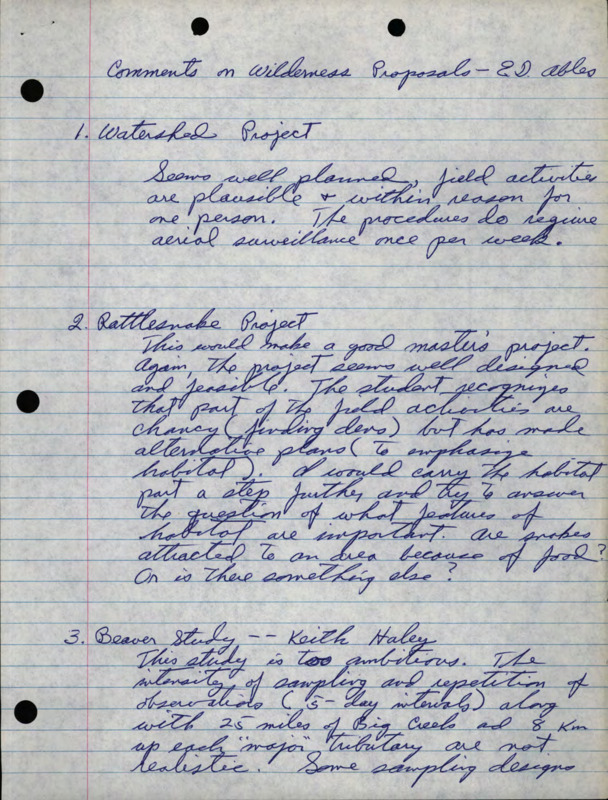 Comments on Wilderness Proposals - E.D. Ables
1. Watershed Project
Seems well planned, field activities
are plausible + within reason for
one person. The procedures do require
aerial surveillance once per week.
2. Rattlesnake Project
This would make a good master's project.
Again, the project seems well designed
and feasible. The student recognizes
that part of the field activities are
chancy (finding dens) but has made
alternative plans (to emphasize
habitat). I would carry the habitat
part a step further and try to answer
the question of what features of
habitat are important. Are snakes
attracted to an area because of food?
Or is there something else?
3. Beaver Study -- Keith Haley
This study is too ambitious. The
intensity of sampling and repetition of
observations (5-day intervals) along
with 25 miles of Big Creek ad 8 Km
up each "major" tributary are not
realistic. Some sampling designs